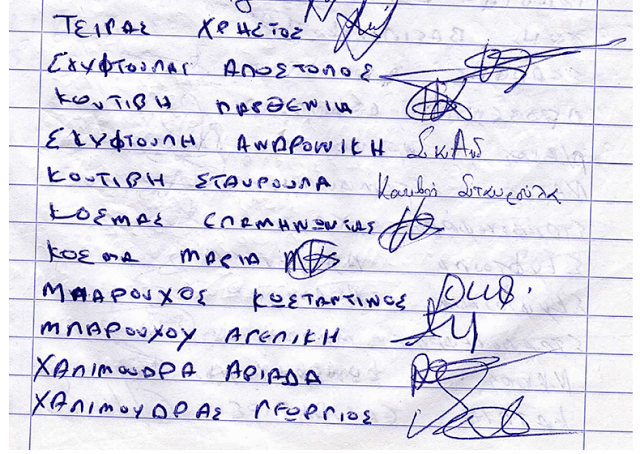 ΤΕΙΡΑΣ ΧΡΗΣΤΟΣ
ΣΚΥΦΤΟΥΛΑΣ ΑΠΟΣΤΟΛΟΣ
ΚΟΥΤΙΒΗ ΠΑΡΘΕΝΙΑ
ΣΚΥΦΤΟΥΛΗ ΑΝΔΡΟΝΙΚΗ ΣκΑνδ
ΚΟΥΤΙΒΗ ΣΤΑΥΡΟΥΛΑ Κουτιβή Σταυρούλα
ΚΟΣΜΑΣ ΕΠΑΜΗΝΩΝΤΑΣ
ΚΟΣΜΑ ΜΑΡΙΑ
ΜΠΑΡΟΥΧΟΣ ΚΩΣΤΑΝΤΙΝΟΣ
ΜΠΑΡΟΥΧΟΥ ΑΓΕΛΙΚΗ
ΧΑΛΙΜΟΥΔΡΑ ΑΡΙΑΔΑ
ΧΑΛΙΜΟΥΔΡΑΣ ΓΕΩΡΓΙΟΣ